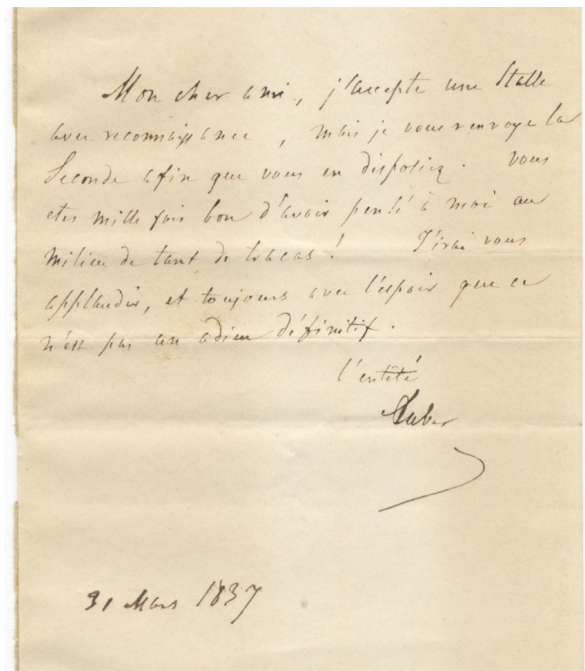 Mon cher ami, j'accepte une Stalle
avec reconnaissance, mais je vous renvoye la
Seconde afin que vous en disposiez. Vous
etes mille fois bon d'avoir pensé à moi au
milieu de tant de tracas! J'irai vous
applaudir, et toujours avec l'espoir que ce
n'est pas un adieu définitif.
l'entêté
Auber
31 Mars 1837